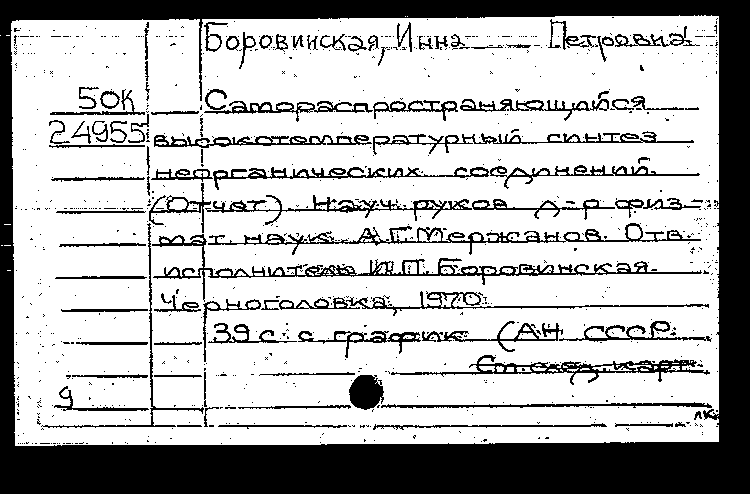 Боровинская, Инна Петровна
50К Самораспространяющийся
24955 высокотемпературный синтез
неорганических соединений.
(Отчет). Науч. руков. д-р физ-
мат. наук А.Г. Мержанов. Отв.
исполнитель И.П. Боровинская.
Черноголовка, 1970.
39 с. с график (АН СССР.
См. след. карт.
9
лк